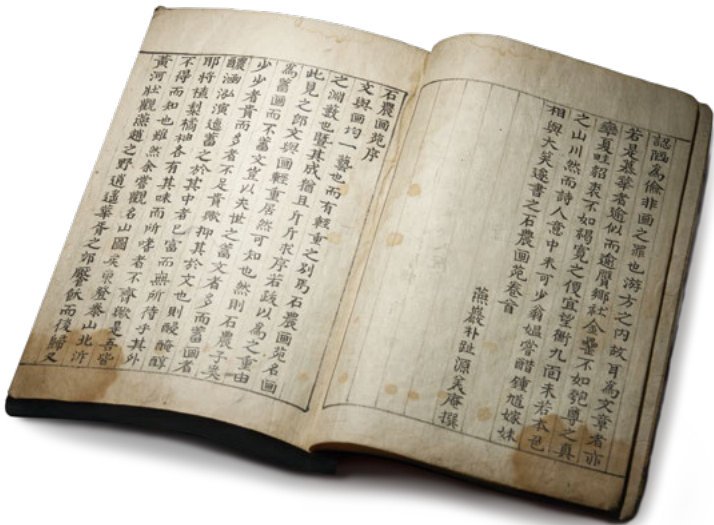 認陋為儉非画之罪也游方之內故耳為文章者亦
若是慕華者逾似而逾贗鄉紱金罍不如匏尊之真
夏哇貂裘不如褐寬之便宜望衡九面未若本邑
之山川然而詩人意中未可少翁媼嘗醋鍾馗嫁妹
相與大笑遂書之石農画苑卷首
燕巖朴趾源美庵撰
石農画苑序
文與画均一藝也而有輕重之別焉石農画苑名画
之淵藪也暨其成猶且斤斤求序若跋以為之重由
此見之郎文與画輕重居然可知也然則石農子奚
為蓄画而不蓄文豈以夫世之蓄文者多而蓄画者
少少者貴而多者不足貴歟抑其於文也則醲醃醇
醲涵泓演遠蓄之於其中者已富而無所待乎其外
耶將樝梨橘柚各有其味而所嗜者不齊歟是吾皆
不得而知也雖然余嘗觀名山圖矣東登泰山北泝
黃河壯觀燕趙之野逍遙華胥之郊饜飫而後歸又